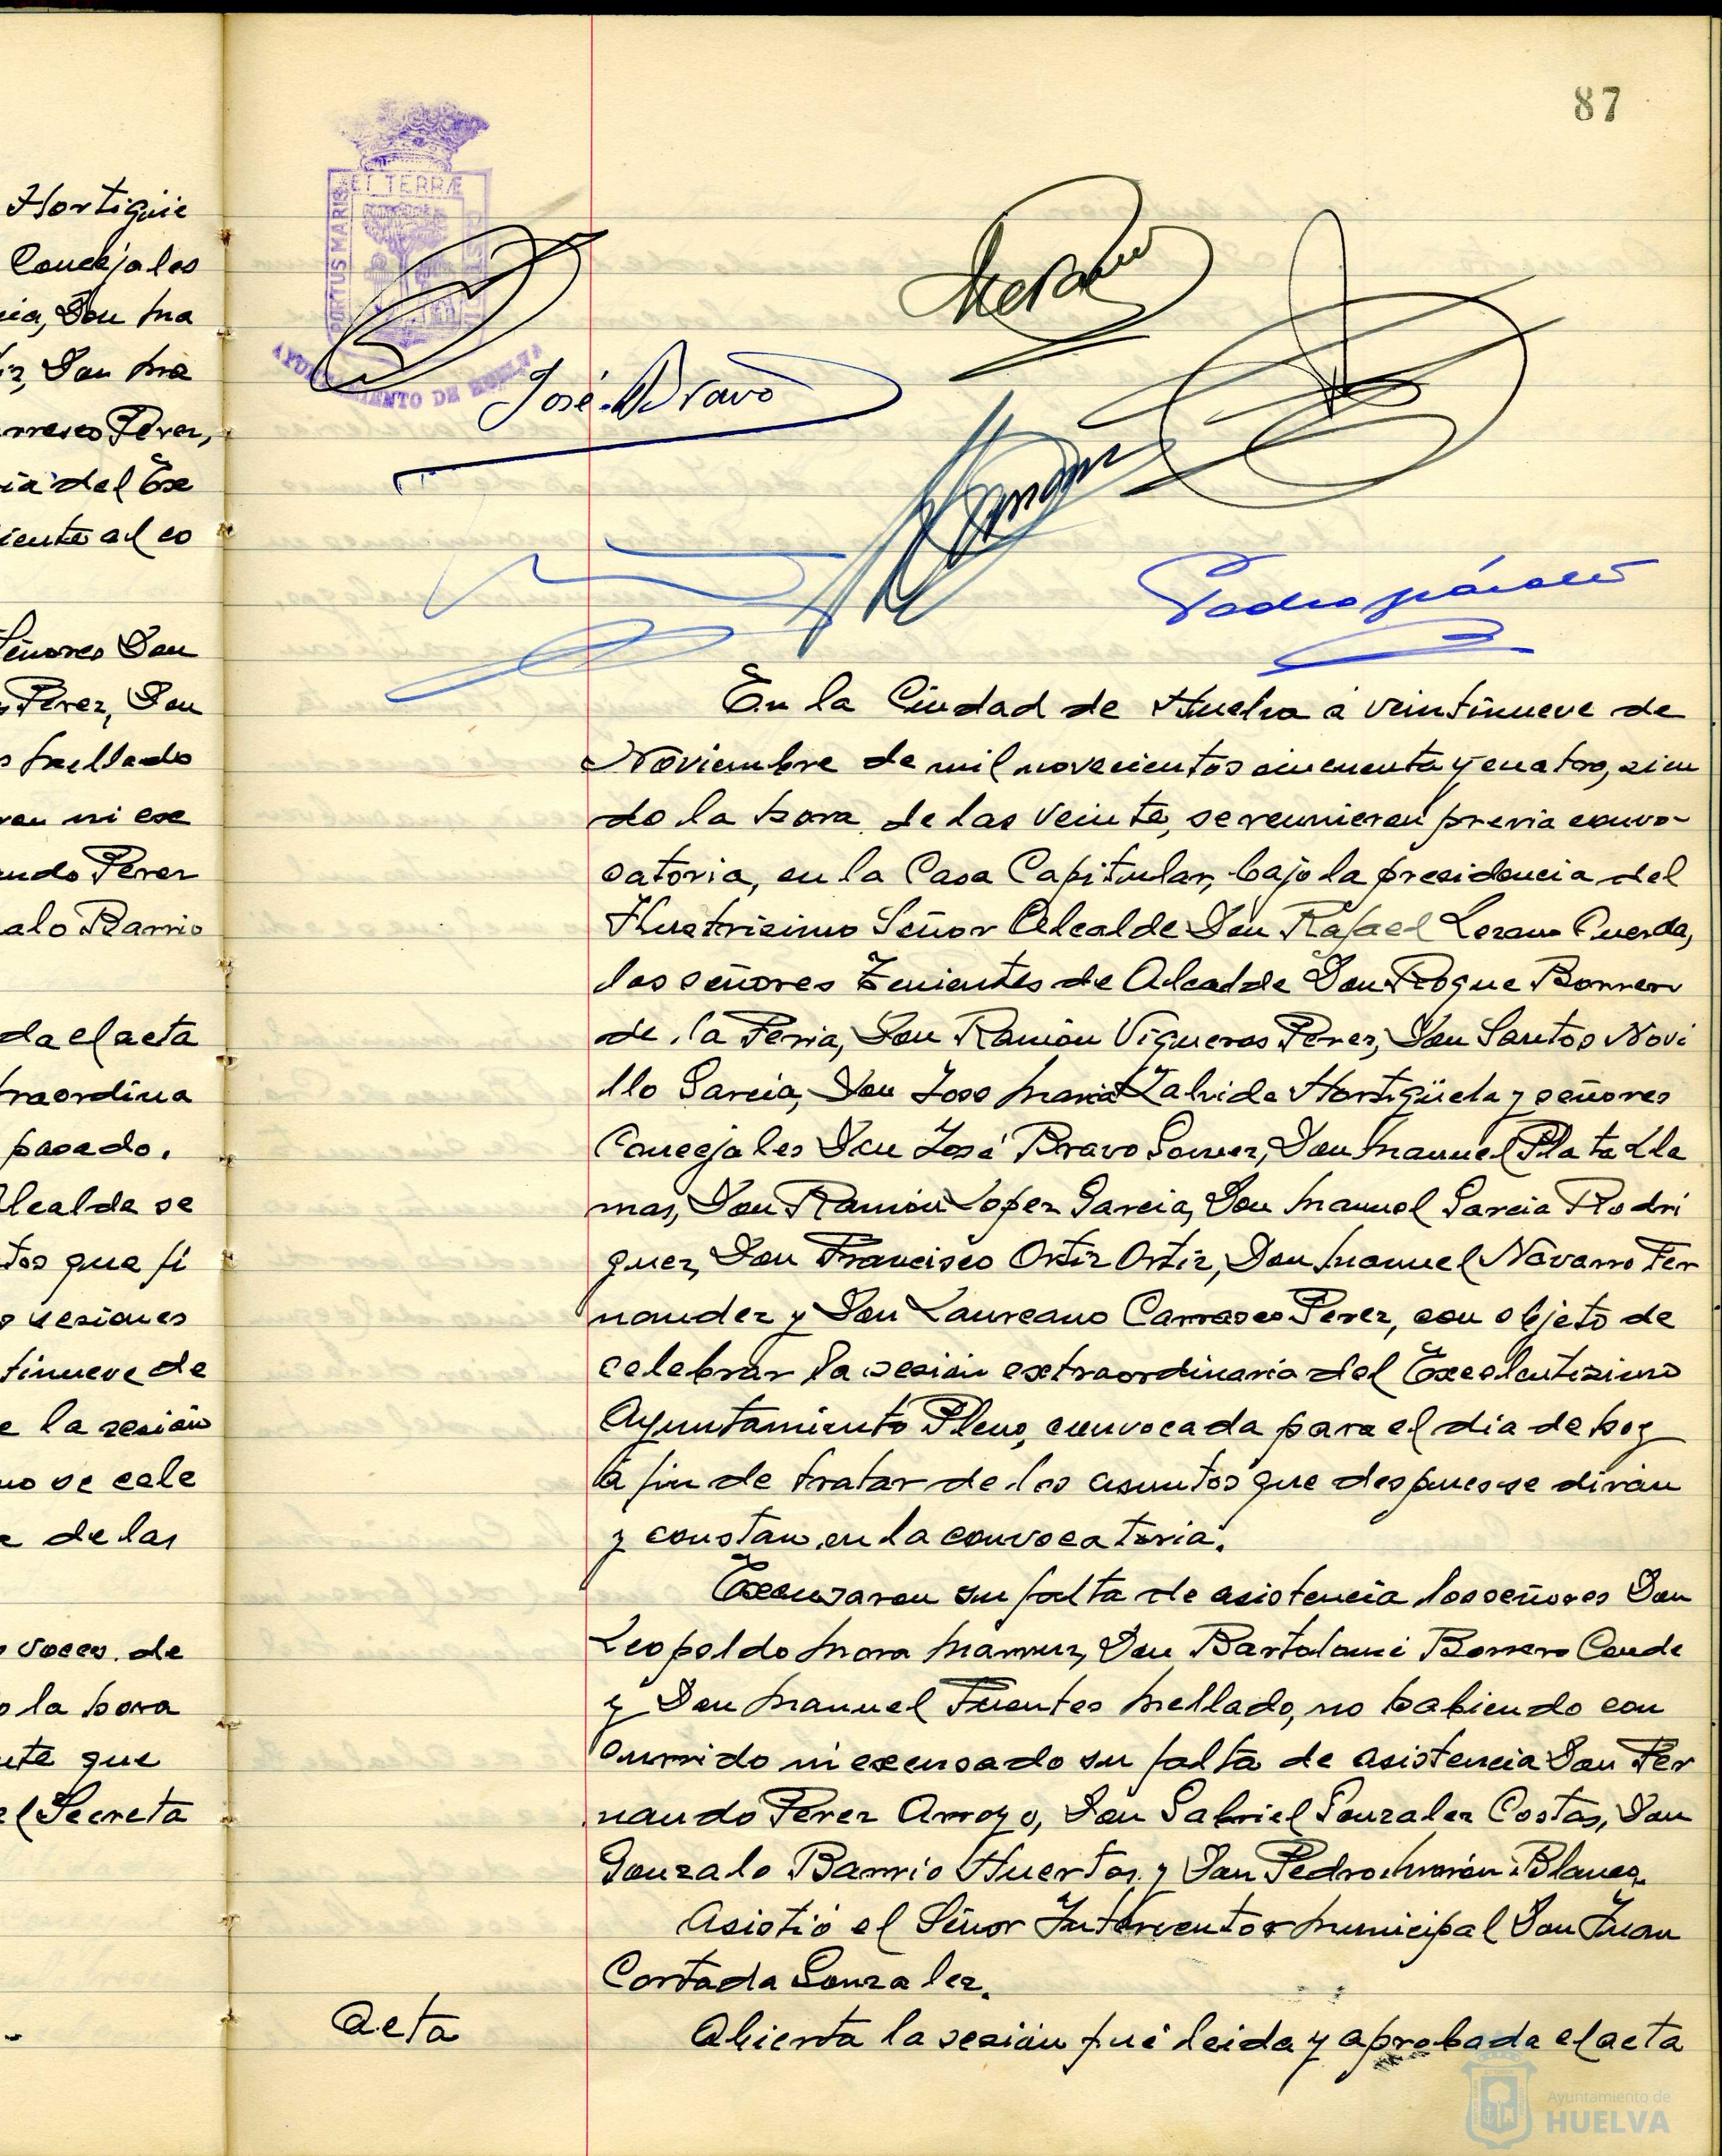 87
Hortigüe
Concejales
cia, Don Ma
iz, Don Ma
rrasco Perez,
ia del Ex
iente al co
Señores Don
Perez, Don
s Mellado
ron ni exc
ando Perez
alo Barrio
da el acta
traordina
pasado.
lcalde se
tos que fi
s sesiones
tinueve de
e la sesión
no se cele
e de las
s voces de
o la hora
nte que
el Secreta
PORTUS MARIS ET TERRÆ
AYUNTAMIENTO DE HUELVA
José Bravo
En la Ciudad de Huelva a veintinueve de
Noviembre de mil novecientos cincuenta y cuatro, sien
do la hora de las veinte, se reunieron previa convo-
catoria, en la Casa Capitular, bajo la presidencia del
Ilustrisimo Señor Alcalde Don Rafael Lozano Cuerda,
los señores Tenientes de Alcalde Don Roque Borrero
de la Feria, Don Ramón Vigueras Perez, Don Santos Novi
llo Garcia, Don Jose Maria Zalvide Hortigüela y señores
Concejales Don José Bravo Gomez, Don Manuel Plata Lla
mas, Don Ramón Lopez Garcia, Don Manuel Garcia Rodri
guez, Don Francisco Ortiz Ortiz, Don Manuel Navarro Fer
nandez y Don Laureano Carrasco Perez, con objeto de
celebrar la sesión extraordinaria del Excelentisimo
Ayuntamiento Pleno, convocada para el dia de hoy
a fin de tratar de los asuntos que despues se dirán
y constan en la convocatoria.
Excusaron su falta de asistencia los señores Don
Leopoldo Mora Don Bartolomé Borrero Conde
y Don Manuel Fuentes Mellado, no habiendo con
currido ni excusado su falta de asistencia Don Fer
nando Perez Arroyo, Don Gabriel Gonzalez Costas, Don
Gonzalo Barrio Huertos y Don Pedro Morón Blanco.
Asistió el Señor Interventor Municipal Don Juan
Cortada Gonzalez.
Acta
Abierta la sesión fué leida y aprobada el acta
Ayuntamiento de
HUELVA